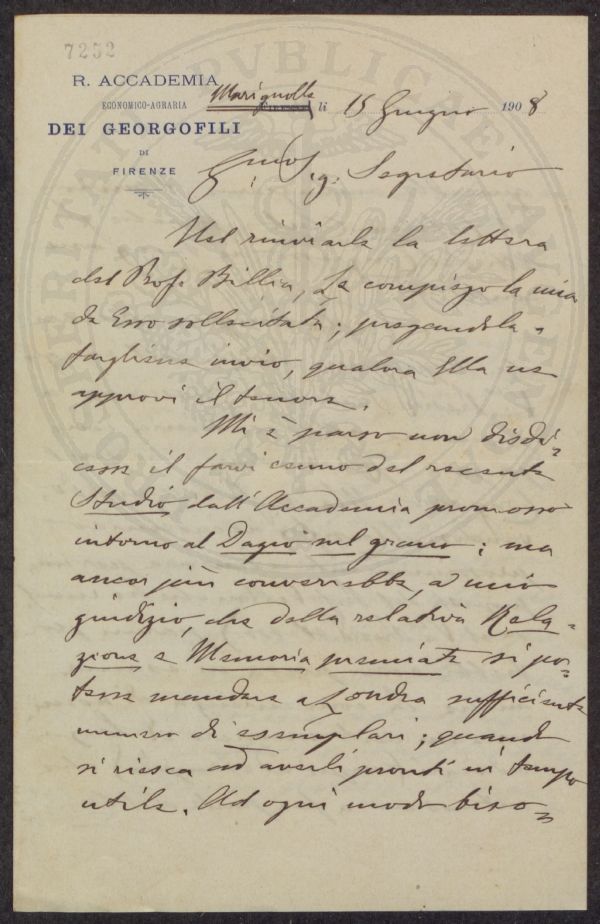 7252
R. ACCADEMIA
ECONOMICO-AGRARIA
DEI GEORGOFILI
DI
FIRENZE
Marignolle li 15 Giugno 1908
Gmo Sig. Segretario
Nel rinviarle la lettera
del Prof. Billia, Le compiego la mia
da Esso sollecitata; pregandola a
fargliene invio, qualora Ella ne
approvi il tenore.
Mi è parso non disdi=
cesse il farvi cenno del recente
Studio dall'Accademia promosso
intorno al Dazio sul grano; ma
ancor più converrebbe, a mio
giudizio, che della relativa Rela=
zione e Memoria premiata si po=
tesse mandare a Londra sufficiente
numero di esemplari; quando
si riesca ad averli pronti in tempo
utile. Ad ogni modo biso=